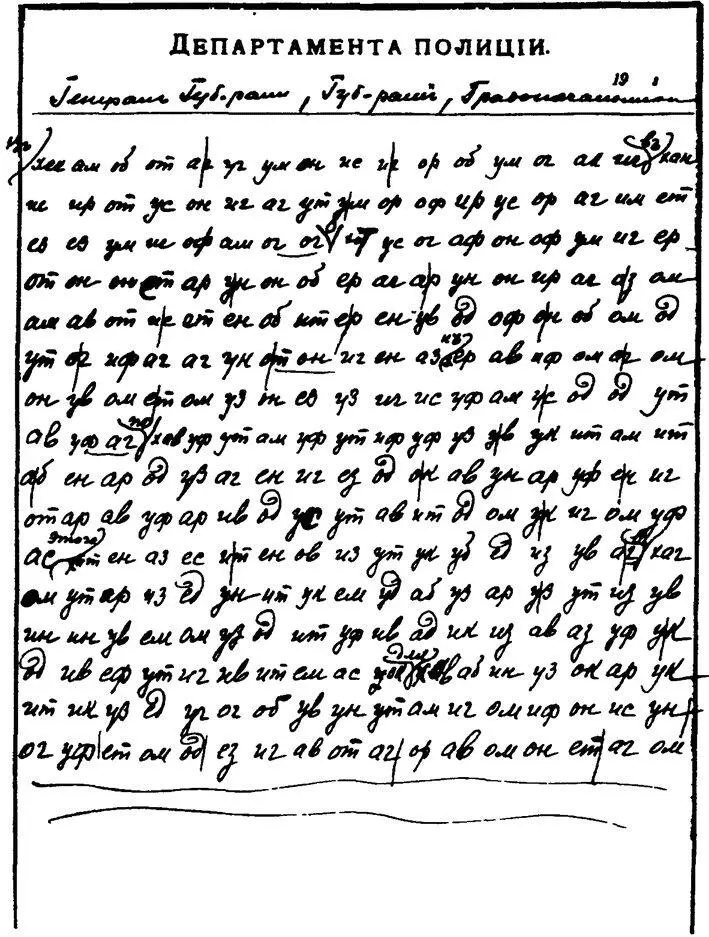 ДЕПАРТАМЕНТА ПОЛИЦІИ.
19
Губ-рами, Губ-рами,
ам об от аг уг ум он ис иг ор об ум ог ак
ир от ус он иг аг ут ум ор оф ир ус ор аг им ет
ез ез ум ис оф ам ог ог ус ог аф он оф ум иг ер
от он он ет ар ун он об ер аг ар ун он ир аг из ом
ам ав от ис ат ен об ит ер ен ув од оф он об ом од
ут ог иф аг аг ун от он иг ен аз ер ав иф ом ог ом
он ув ом ет ом уз он ез уз иг ис уф ам ук од од ут
ав уф аг уф ут ам уф ут иф уф уз ув ук ит ам ит
аб ен ар од уз аг ен иг ез од ок ав ун ар уф ен иг
от ар ав уф ар ив од ус ут ав ит од ом ук иг ом уф
ас этого ит ен аз ес ит ен ов из ут ук уб ед из ув аг каг
ом ут ар из ед ун ит ук ем уд аб уз ар уз ут из ув
ин ин ув ем ом уз од ит уф ив ад ик из ав аз уф ук
од ив еф ут иг ив ит ем ас для аб ин уз ок ар ук
ит ик уз ед уг ог об ув ун ут ам иг ом иф он ис ун
ог уф ет ом од ез иг ав от аг ор ав ом он ет аг ом